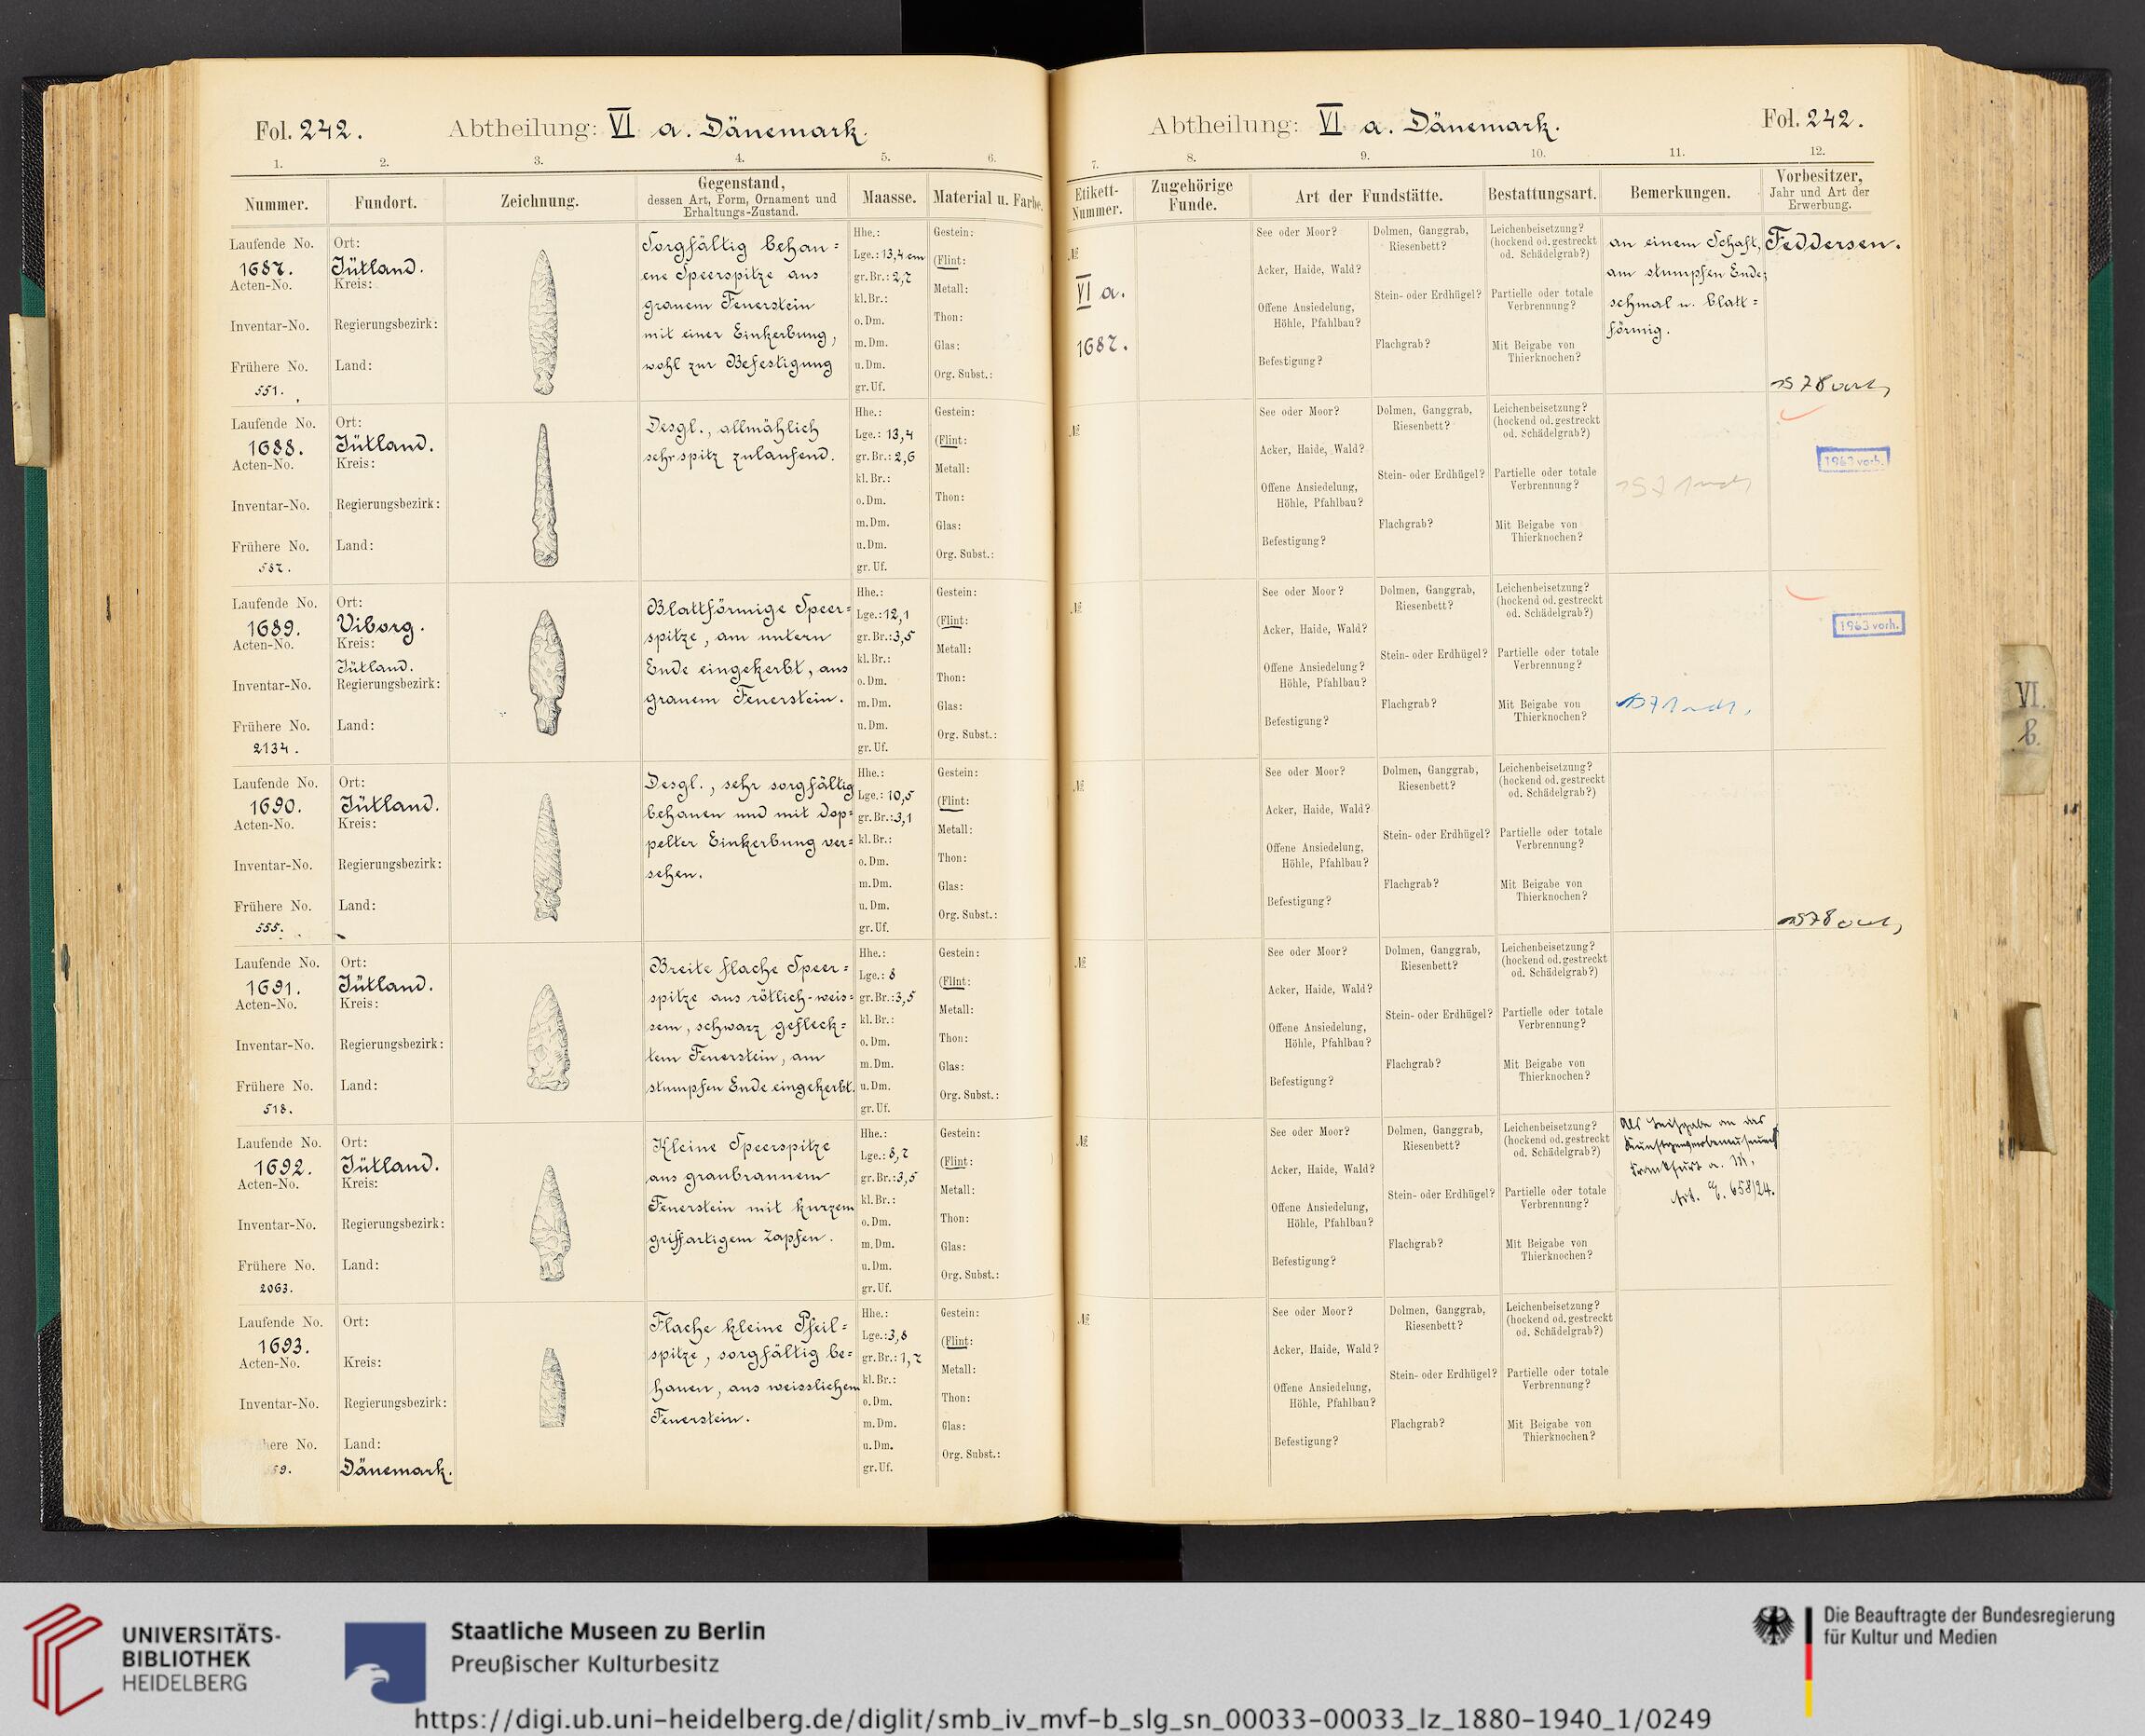 Fol. 242.
Abtheilung: VI a. Dänemark.
1. 2. 3. 4. 5. 6.
Nummer.
Fundort.
Zeichnung.
Gegenstand,
dessen Art, Form, Ornament und
Erhaltungs-Zustand.
Maasse.
Material u. Farbe.
Laufende No.
1687.
Acten-No.
Inventar-No.
Frühere No.
551.
Ort:
Jütland.
Kreis:
Regierungsbezirk:
Land:
Sorgfältig behau=
ene Speerspitze aus
grauem Feuerstein
mit einer Einkerbung,
wohl zur Befestigung
Hhe.:
Lge.: 13,4 cm
gr. Br.: 2,7
kl. Br.:
o. Dm.
m. Dm.
u. Dm.
gr. Uf.
Gestein:
(Flint:
Metall:
Thon:
Glas:
Org. Subst.:
Laufende No.
1688.
Acten-No.
Inventar-No.
Frühere No.
587.
Ort:
Jütland.
Kreis:
Regierungsbezirk:
Land:
Desgl., allmählich
sehr spitz zulaufend.
Hhe.:
Lge.: 13,4
gr. Br.: 2,6
kl. Br.:
o. Dm.
m. Dm.
u. Dm.
gr. Uf.
Gestein:
(Flint:
Metall:
Thon:
Glas:
Org. Subst.:
Laufende No.
1689.
Acten-No.
Inventar-No.
Frühere No.
2134.
Ort:
Viborg.
Kreis:
Jütland.
Regierungsbezirk:
Land:
Blattförmige Speer=
spitze, am untern
Ende eingekerbt, aus
grauem Feuerstein.
Hhe.:
Lge.: 12,1
gr. Br.: 3,5
kl. Br.:
o. Dm.
m. Dm.
u. Dm.
gr. Uf.
Gestein:
(Flint:
Metall:
Thon:
Glas:
Org. Subst.:
Laufende No.
1690.
Acten-No.
Inventar-No.
Frühere No.
555.
Ort:
Jütland.
Kreis:
Regierungsbezirk:
Land:
Desgl., sehr sorgfältig
behauen und mit dop=
pelter Einkerbung ver=
sehen.
Hhe.:
Lge.: 10,5
gr. Br.: 3,1
kl. Br.:
o. Dm.
m. Dm.
u. Dm.
gr. Uf.
Gestein:
(Flint:
Metall:
Thon:
Glas:
Org. Subst.:
Laufende No.
1691.
Acten-No.
Inventar-No.
Frühere No.
518.
Ort:
Jütland.
Kreis:
Regierungsbezirk:
Land:
Breite flache Speer=
spitze aus rötlich-weis=
sem, schwarz gefleck=
tem Feuerstein, am
stumpfen Ende eingekerbt.
Hhe.:
Lge.: 8
gr. Br.: 3,5
kl. Br.:
o. Dm.
m. Dm.
u. Dm.
gr. Uf.
Gestein:
(Flint:
Metall:
Thon:
Glas:
Org. Subst.:
Laufende No.
1692.
Acten-No.
Inventar-No.
Frühere No.
2063.
Ort:
Jütland.
Kreis:
Regierungsbezirk:
Land:
Kleine Speerspitze
aus graubraunem
Feuerstein mit kurzem
griffartigem Zapfen.
Hhe.:
Lge.: 8,7
gr. Br.: 3,5
kl. Br.:
o. Dm.
m. Dm.
u. Dm.
gr. Uf.
Gestein:
(Flint:
Metall:
Thon:
Glas:
Org. Subst.:
Laufende No.
1693.
Acten-No.
Inventar-No.
No.
Ort:
Kreis:
Regierungsbezirk:
Land:
Dänemark.
Flache kleine Pfeil=
spitze, sorgfältig be=
hauen, aus weisslichem
Feuerstein.
Hhe.:
Lge.: 3,8
gr. Br.: 1,7
kl. Br.:
o. Dm.
m. Dm.
u. Dm.
gr. Uf.
Gestein:
(Flint:
Metall:
Thon:
Glas:
Org. Subst.:
Abtheilung: VI a. Dänemark.
Fol. 242.
7. 8. 9. 10. 11. 12.
Etikett-
Nummer.
Zugehörige
Funde.
Art der Fundstätte.
Bestattungsart.
Bemerkungen.
Vorbesitzer,
Jahr und Art der
Erwerbung.
№
VI a.
1687.
See oder Moor?
Acker, Haide, Wald?
Offene Ansiedelung,
Höhle, Pfahlbau?
Befestigung?
Dolmen, Ganggrab,
Riesenbett?
Stein- oder Erdhügel?
Flachgrab?
Leichenbeisetzung?
(hockend od. gestreckt
od. Schädelgrab?)
Partielle oder totale
Verbrennung?
Mit Beigabe von
Thierknochen?
an einem Schaft,
am stumpfen Ende;
schmal u. blatt=
förmig.
Feddersen.
1978 vorh.
№
See oder Moor?
Acker, Haide, Wald?
Offene Ansiedelung,
Höhle, Pfahlbau?
Befestigung?
Dolmen, Ganggrab,
Riesenbett?
Stein- oder Erdhügel?
Flachgrab?
Leichenbeisetzung?
(hockend od. gestreckt
od. Schädelgrab?)
Partielle oder totale
Verbrennung?
Mit Beigabe von
Thierknochen?
1963 vorh.
№
See oder Moor?
Acker, Haide, Wald?
Offene Ansiedelung?
Höhle, Pfahlbau?
Befestigung?
Dolmen, Ganggrab,
Riesenbett?
Stein- oder Erdhügel?
Flachgrab?
Leichenbeisetzung?
(hockend od. gestreckt
od. Schädelgrab?)
Partielle oder totale
Verbrennung?
Mit Beigabe von
Thierknochen?
1963 vorh.
№
See oder Moor?
Acker, Haide, Wald?
Offene Ansiedelung,
Höhle, Pfahlbau?
Befestigung?
Dolmen, Ganggrab,
Riesenbett?
Stein- oder Erdhügel?
Flachgrab?
Leichenbeisetzung?
(hockend od. gestreckt
od. Schädelgrab?)
Partielle oder totale
Verbrennung?
Mit Beigabe von
Thierknochen?
1978 vorh.
№
See oder Moor?
Acker, Haide, Wald?
Offene Ansiedelung,
Höhle, Pfahlbau?
Befestigung?
Dolmen, Ganggrab,
Riesenbett?
Stein- oder Erdhügel?
Flachgrab?
Leichenbeisetzung?
(hockend od. gestreckt
od. Schädelgrab?)
Partielle oder totale
Verbrennung?
Mit Beigabe von
Thierknochen?
№
See oder Moor?
Acker, Haide, Wald?
Offene Ansiedelung,
Höhle, Pfahlbau?
Befestigung?
Dolmen, Ganggrab,
Riesenbett?
Stein- oder Erdhügel?
Flachgrab?
Leichenbeisetzung?
(hockend od. gestreckt
od. Schädelgrab?)
Partielle oder totale
Verbrennung?
Mit Beigabe von
Thierknochen?
Als Leihgabe an das
Kunstgewerbemuseum
Frankfurt a. M.
658/24.
№
See oder Moor?
Acker, Haide, Wald?
Offene Ansiedelung,
Höhle, Pfahlbau?
Befestigung?
Dolmen, Ganggrab,
Riesenbett?
Stein- oder Erdhügel?
Flachgrab?
Leichenbeisetzung?
(hockend od. gestreckt
od. Schädelgrab?)
Partielle oder totale
Verbrennung?
Mit Beigabe von
Thierknochen?
VI.
b.
UNIVERSITÄTS-
BIBLIOTHEK
HEIDELBERG
Staatliche Museen zu Berlin
Preußischer Kulturbesitz
Die Beauftragte der Bundesregierung
für Kultur und Medien
https://digi.ub.uni-heidelberg.de/diglit/smb_iv_mvf-b_slg_sn_00033-00033_lz_1880-1940_1/0249